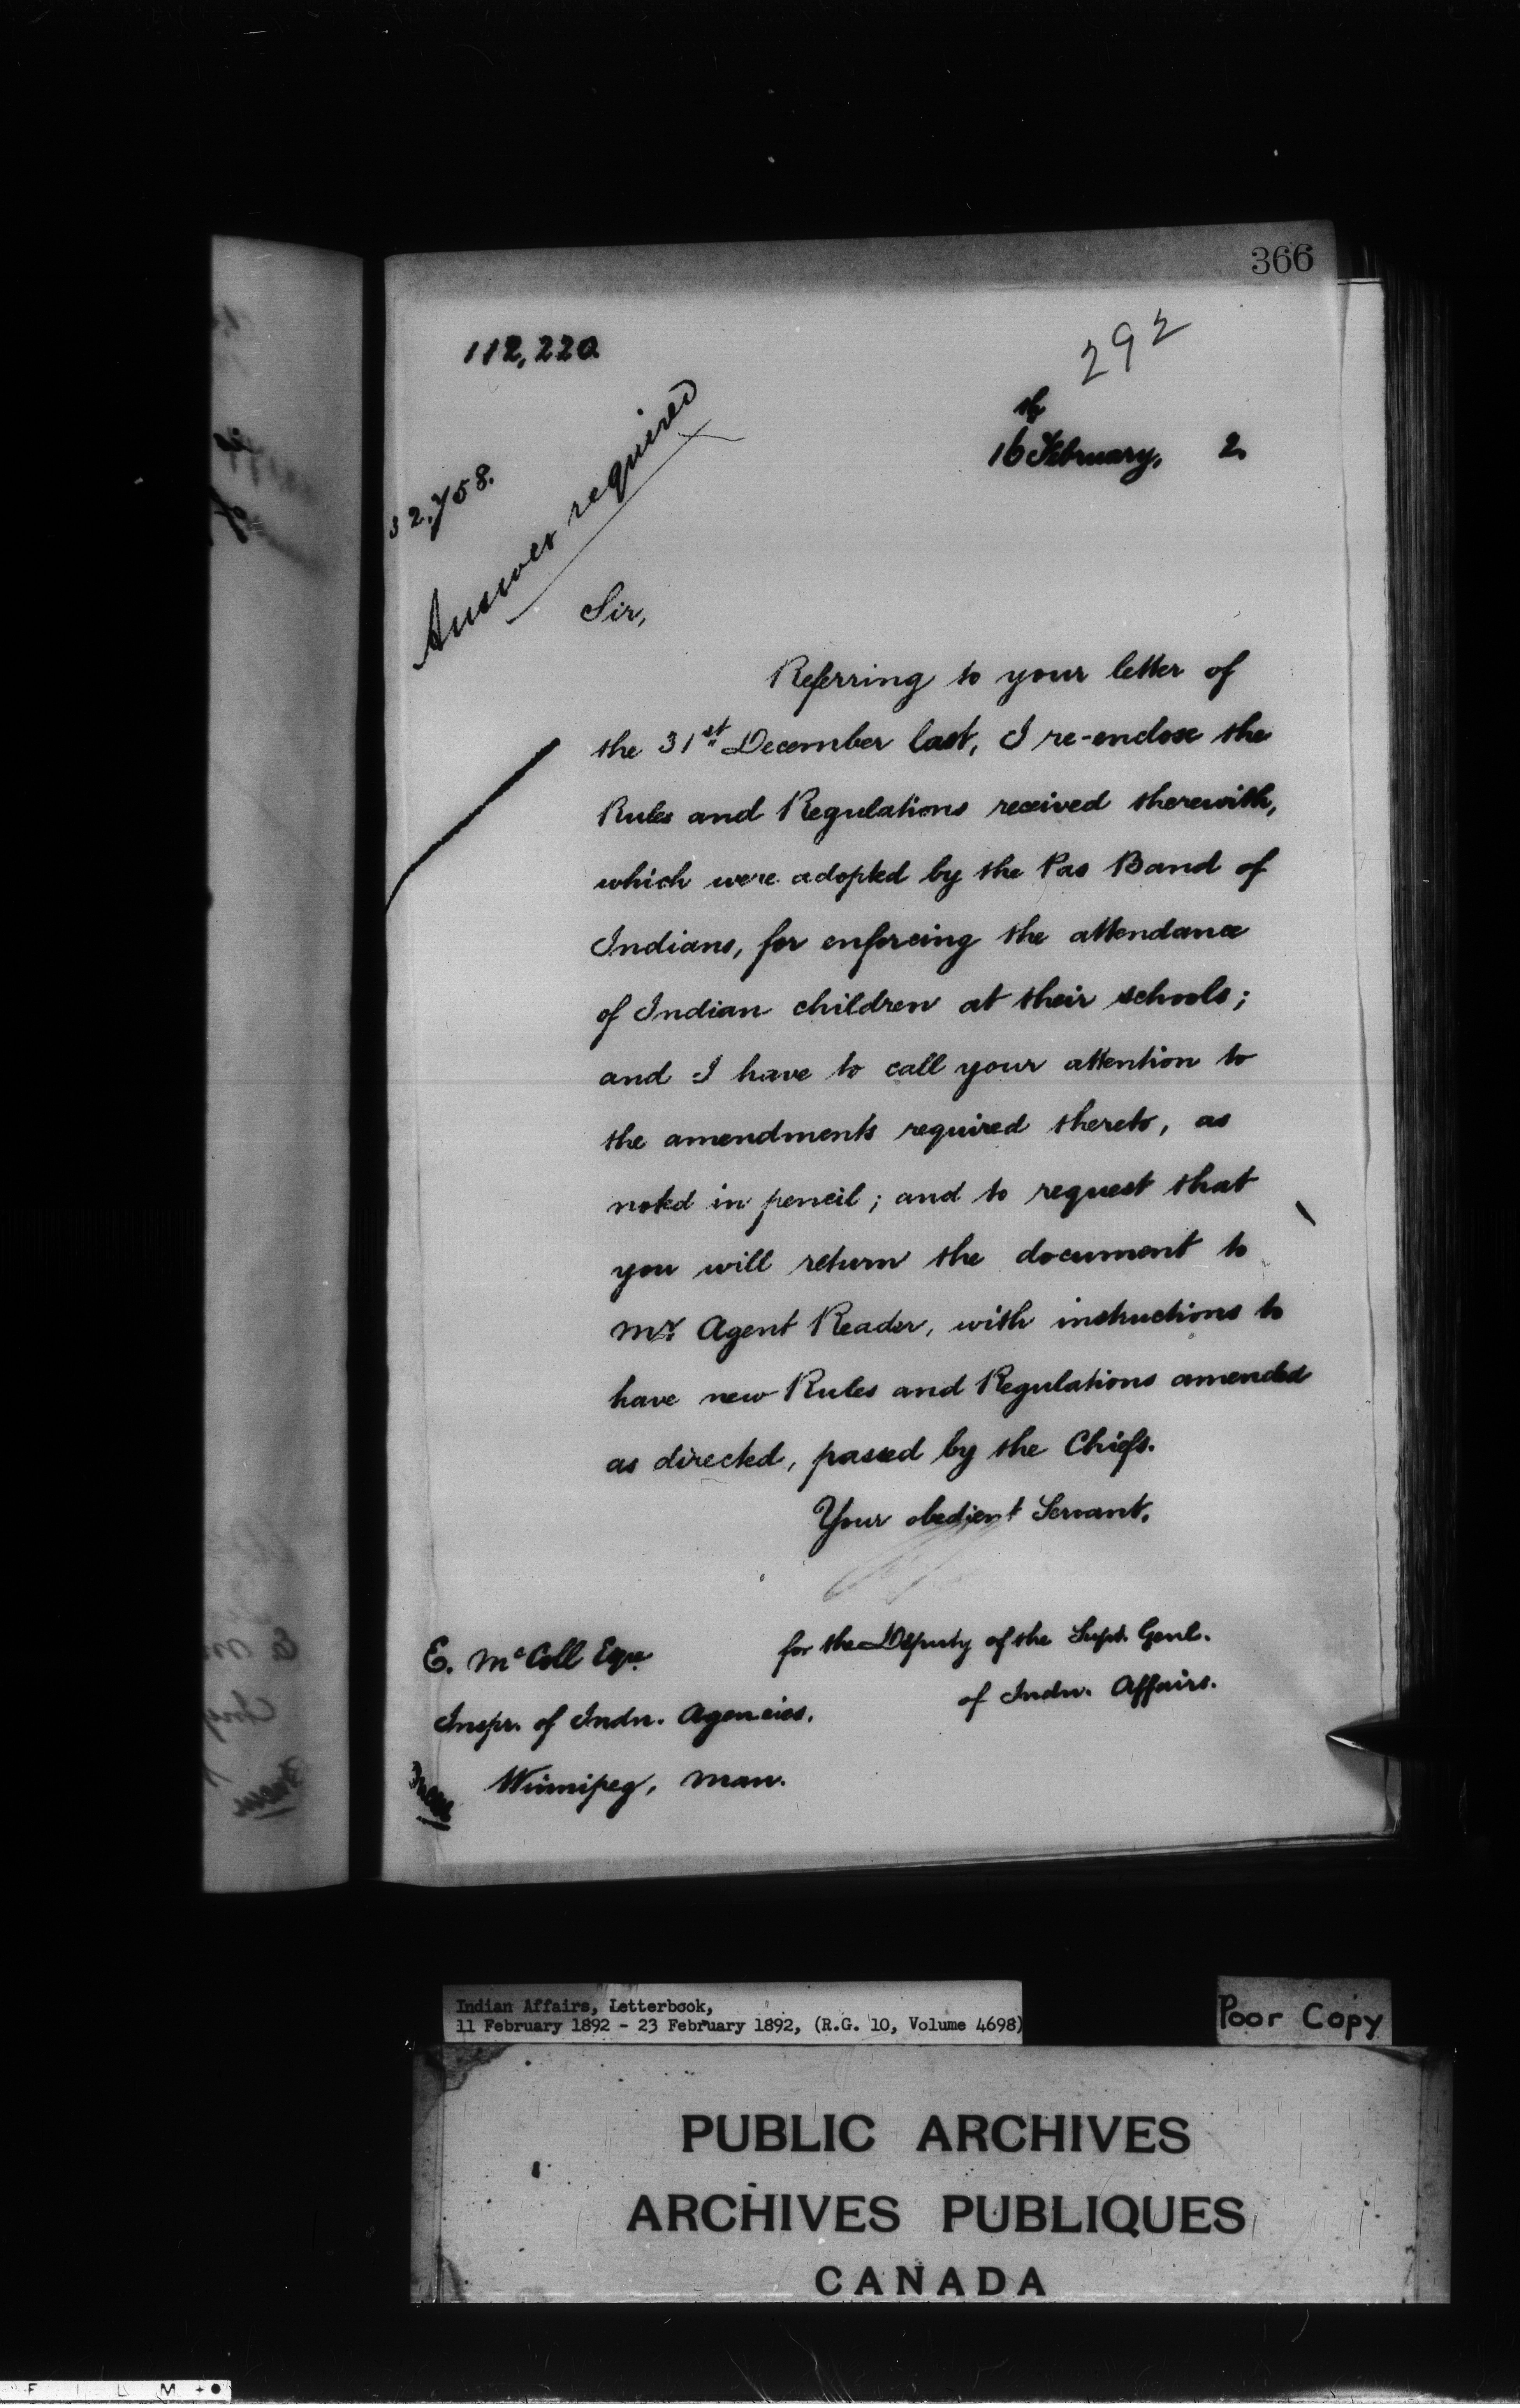 366
112,220
292
th
16 February, 2
Answer required
Sir,
Referring to your letter of
the 31st December last, I re-enclose the
Rules and Regulations received therewith,
which were adopted by the Pas Band of
Indians, for enforcing the attendance
of Indian children at their schools;
and I have to call your attention to
the amendments required thereto, as
noted in pencil; and to request that
you will return the document to
Mr. Agent Reader, with instructions to
have new Rules and Regulations amended
as directed, passed by the Chiefs.
Your obedient Servant,
for the Deputy of the Supt. Genl.
of Indn. Affairs.
E. McColl Esqre
Inspr. of Indn. Agencies,
Winnipeg, Man.
Indian Affairs, Letterbook,
11 February 1892 - 23 February 1892, (R.G. 10, Volume 4698)
Poor Copy
PUBLIC ARCHIVES
ARCHIVES PUBLIQUES
CANADA